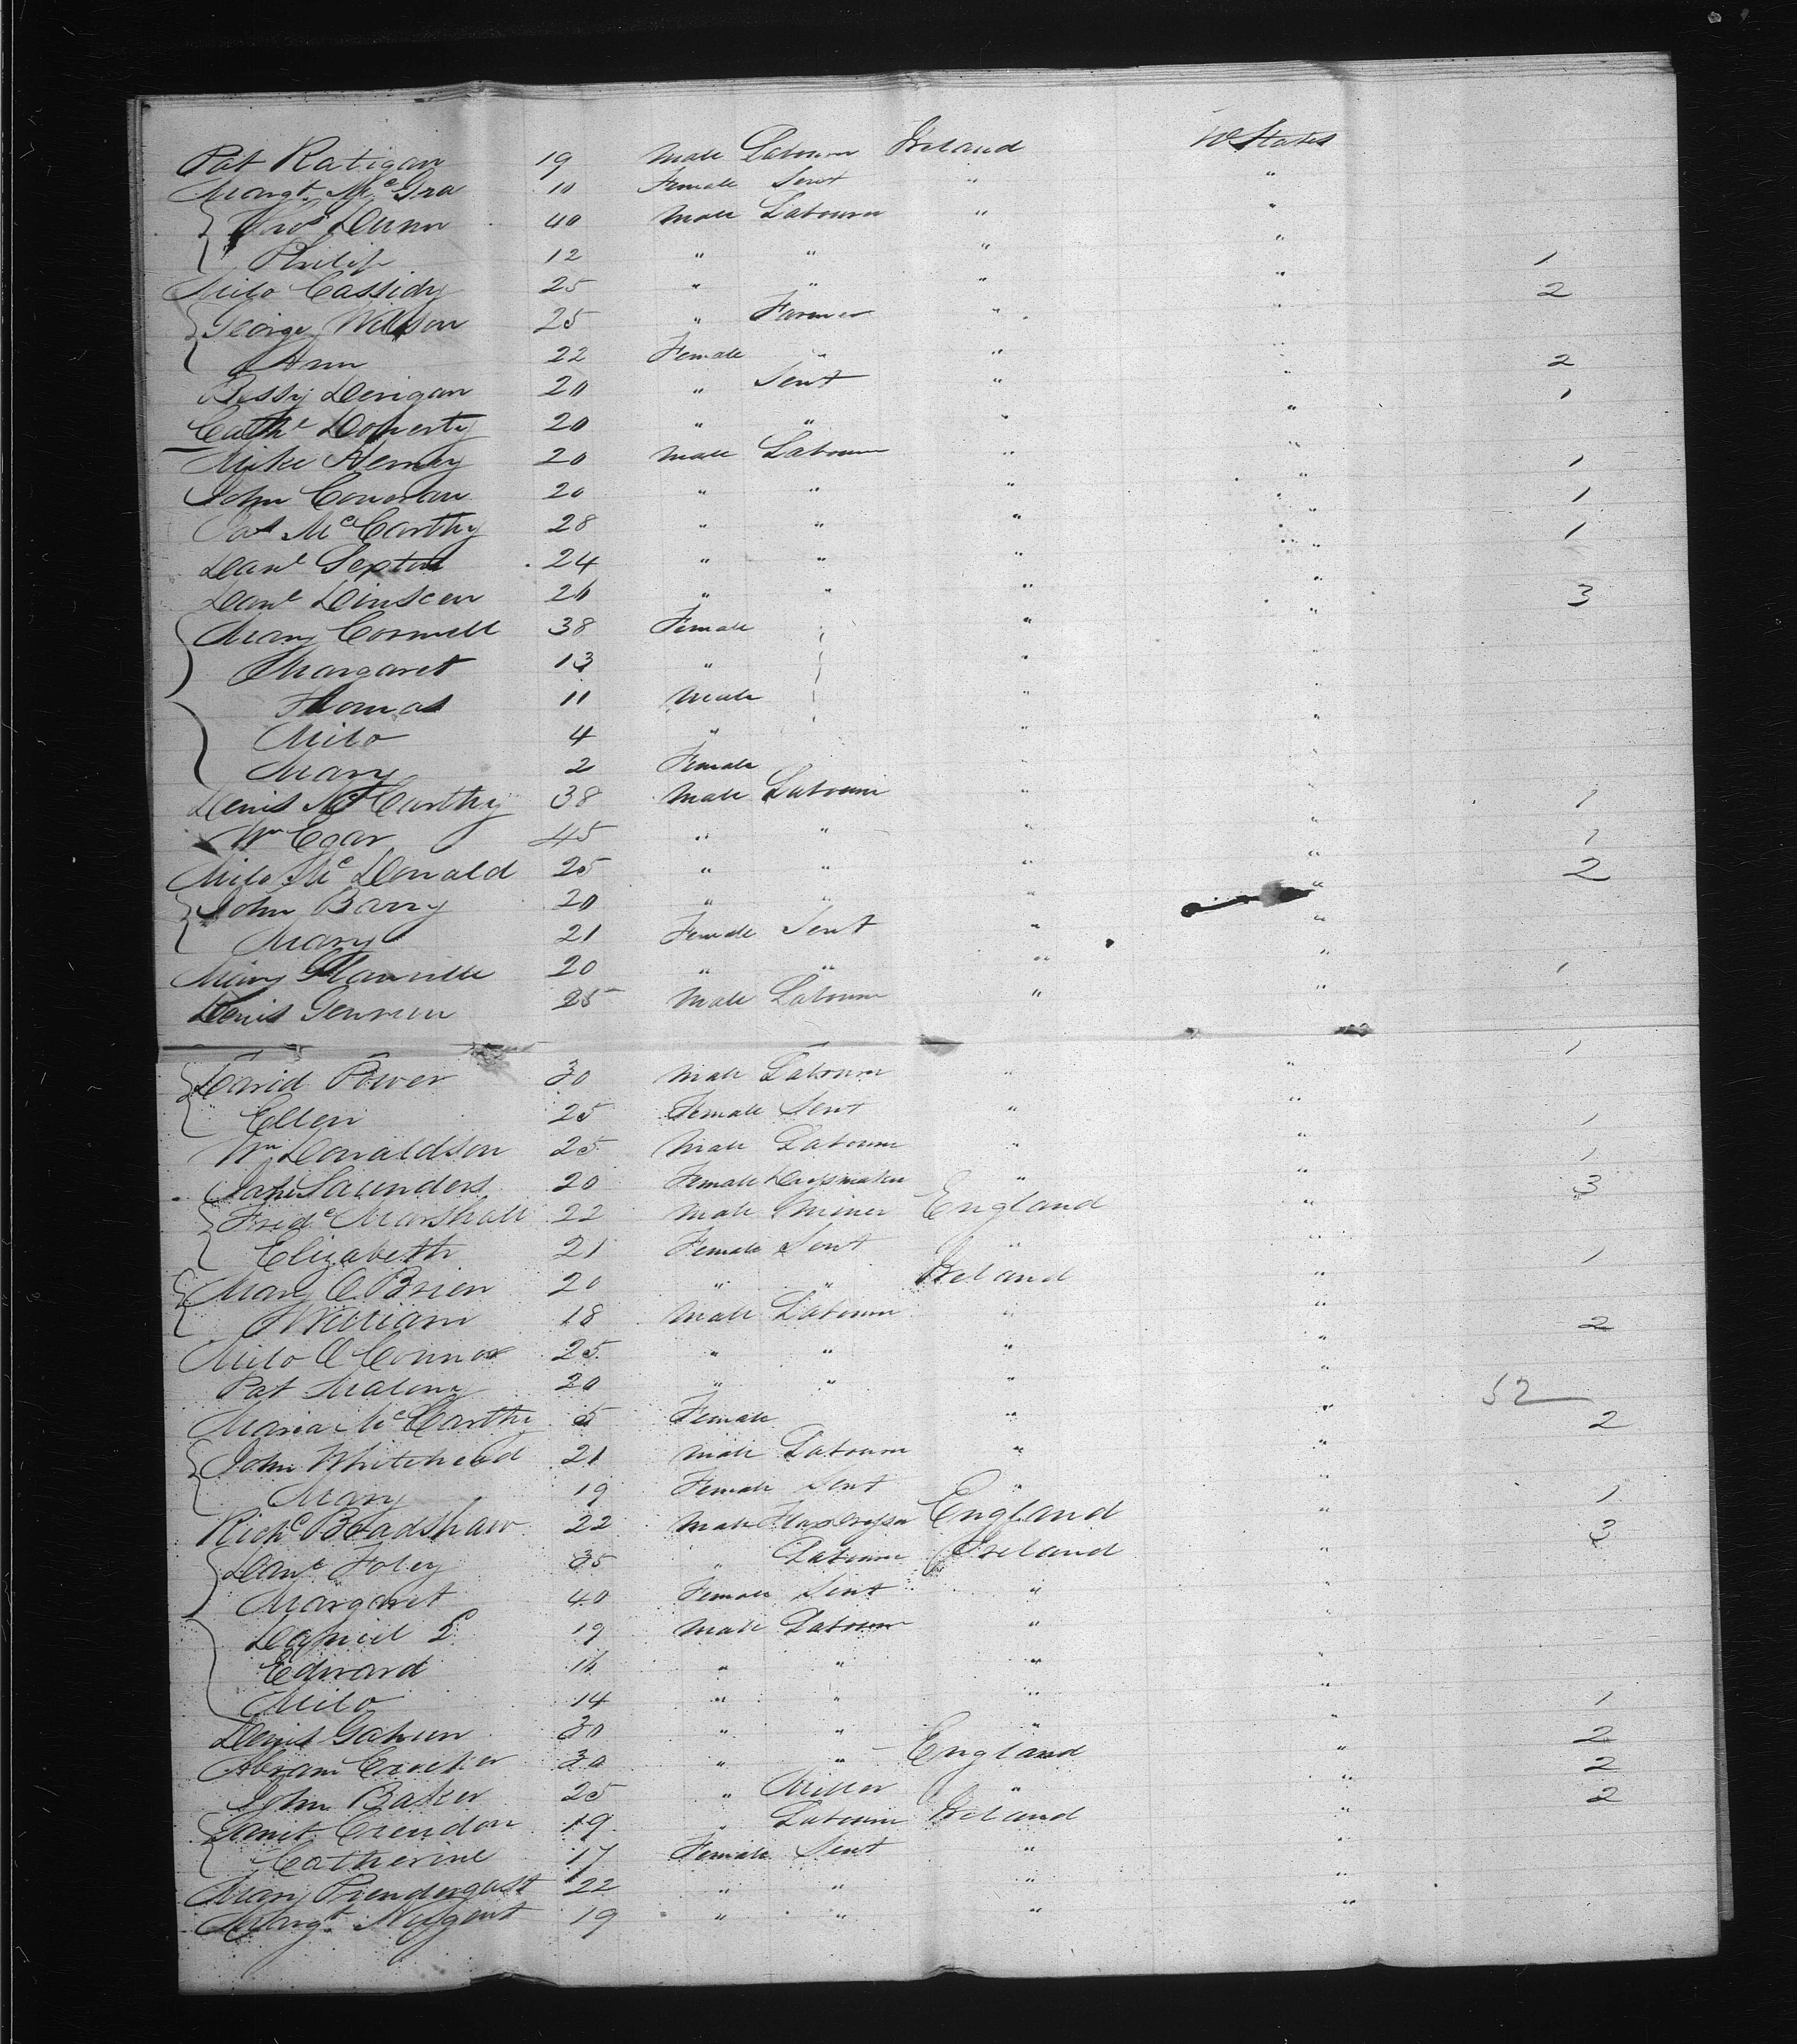 Pat Ratigan 19 Male Labourer Ireland U States
Margt. McGra 10 Female Servt " "
Thos Dunn 40 Male Labourer " "
Philip 12 " " " " 1
Mich Cassidy 25 " " " " 2
George Willson 25 " Farmer " "
Ann 22 Female " " " 2
Bessy Derigan 20 " Servt " " 1
Cathe Doherty 20 " " " "
Mike Henry 20 Male Labourer " " 1
John Conoran 20 " " " " 1
Pat McCarthy 28 " " " " 1
Danl Sexton 24 " " " "
Danl Dinscen 26 " " " " 3
Mary Cornell 38 Female " "
Margaret 13 " " "
Thomas 11 Male " "
Mich 4 " " "
Mary 2 Female " "
Denis McCarthy 38 Male Labourer " " 1
Wm Egar 45 " " " " 1
Mich McDonald 25 " " " " 2
John Barry 20 " " " "
Mary 21 Female Servt " "
Mary Glanville 20 " " " " 1
Denis 25 Male Labourer " "
David Power 30 Male Labourer " " 1
Ellen 25 Female Servt " "
Wm Donaldson 25 Male Labourer " " 1
Jane Saunders 20 Female Dressmaker " " 1
Fredc Marshall 22 Male Miner England " 3
Elizabeth 21 Female Servt " "
Mary O Brien 20 " " Ireland " 1
William 18 Male Labourer " "
Mich O Connor 25 " " " " 2
Pat Malony 20 " " " "
Maria McCarthy 5 Female " " 52
John Whitehead 21 Male Labourer " " 2
Mary 19 Female Servt " "
Richd Bradshaw 22 Male Flax Dresser England " 1
Danl Foley 35 " Labourer Ireland " 3
Margaret 40 Female Servt " "
Daniel 19 Male Labourer " "
Edward 16 " " " "
Mich 14 " " " "
Denis Gahun 30 " " " " 1
Abram Crocker 30 " " England " 2
John Baker 25 " Miller " " 2
Crendon 19 " Labourer Ireland " 2
Catherine 17 Female Servt " "
Mary Prendergast 22 " " " "
Margt. Nugent 19 " " " "